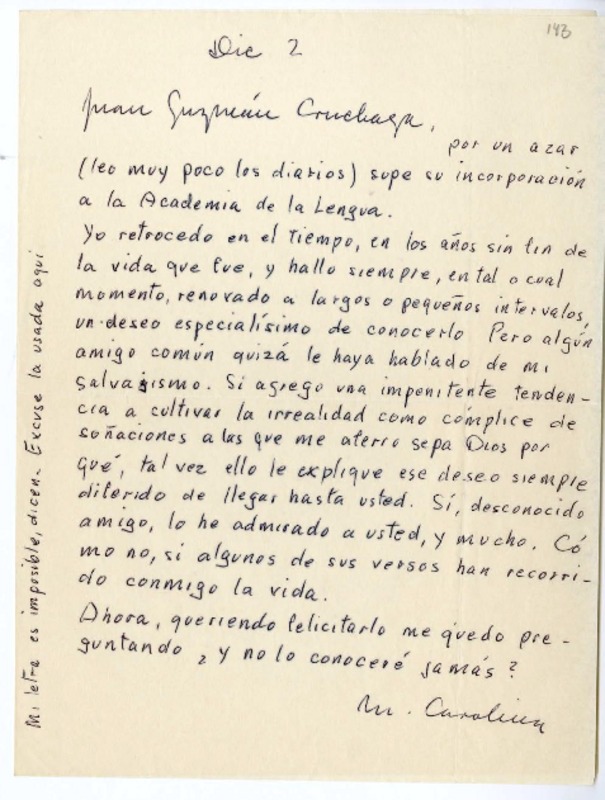 143
Dic 2
Juan Guzmán Cruchaga,
por un azar
(leo muy poco los diarios) supe su incorporación
a la Academia de la Lengua.
Yo retrocedo en el tiempo, en los años sin fin de
la vida que fue, y hallo siempre, en tal o cual
momento, renovado a largos o pequeños intervalos,
un deseo especialísimo de conocerlo Pero algún
amigo común quizá le haya hablado de mi
salvajismo. Si agrego una impenitente tenden-
cia a cultivar la irrealidad como cómplice de
soñaciones a las que me aferro sepa Dios por
qué, tal vez ello le explique ese deseo siempre
diferido de llegar hasta usted. Sí, desconocido
amigo, lo he admirado a usted, y mucho. Có
mo no, si algunos de sus versos han recorri-
do conmigo la vida.
Ahora, queriendo felicitarlo me quedo pre-
guntando ¿ y no lo conoceré jamás?
M. Carolina
Mi letra es imposible, dicen. Excuse la usada aquí